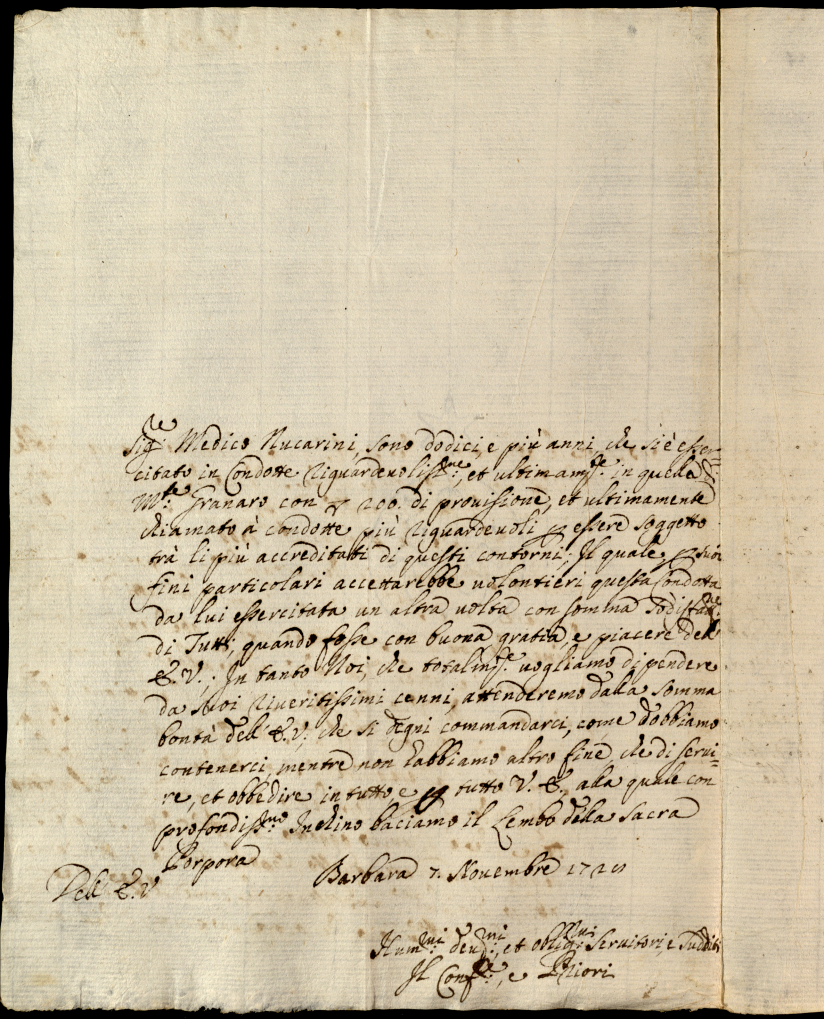 Sig.re Medico Nucarini, sono dodici, e più anni, che si è eser=
citato in Condotte riguardevoliss.me, et ultimam.te in quella di
M.te Granaro con 200. di provisione, et ultimamente
chiamato à condotte più riguardevoli p essere soggetto
trà li più accreditati di questi contorni; Il quale p suoi
fini particolari accettarebbe volontieri questa Condotta
da lui essercitata un altra volta con somma sodisfaz.ne
di Tutti, quando fosse con buona gratia, e piacere dell'
E.V. In tanto Noi, che totalm.te vogliamo dipendere
da suoi riveritissimi cenni, attenderemo dalla somma
bontà dell'E.V., che si degni commandarci, come dobbiamo
contenerci, mentre non habbiamo altro fine, che di servi=
re, et obbedire in tutto, e p tutto V.E., alla quale con
profondiss.mo Inchino baciamo il Lembo della Sacra
Porpora
Dell'E.V. Barbara 7. Novembre
Hum.mi dev.mi, et oblig.mi Servitori, e Sudditi
Il Conf.re, e Priori